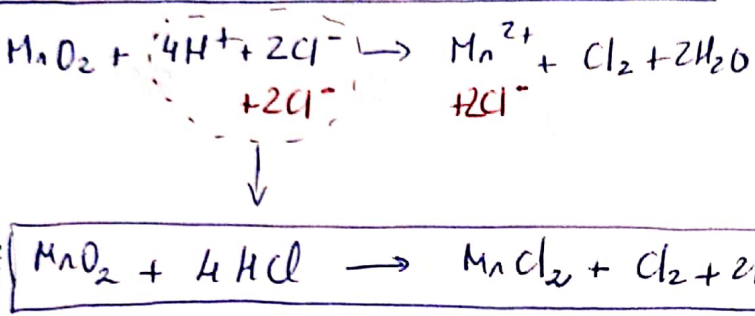 MnO₂ + 4H⁺ + 2Cl⁻ → Mn²⁺ + Cl₂ + 2H₂O
+2Cl⁻ +2Cl⁻
↓
MnO₂ + 4HCl → MnCl₂ + Cl₂ + 2